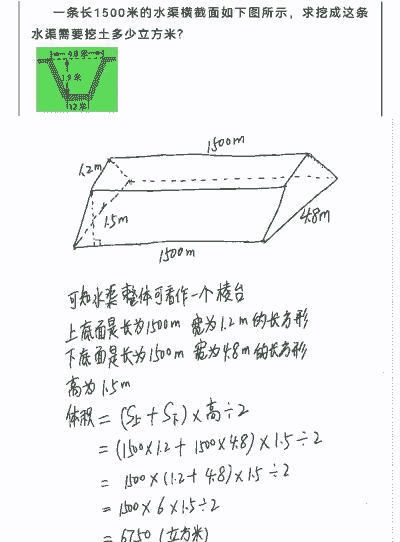 一条长1500米的水渠横截面如下图所示，求挖成这条
水渠需要挖土多少立方米？
4.8 米
1.5 米
1.2 米
1500m
1.2m
1.5m
4.8m
1500m
可知水渠整体可看作一个棱台
上底面是长为1500m 宽为1.2m的长方形
下底面是长为1500m 宽为4.8m的长方形
高为1.5m
体积=(S上+S下)×高÷2
=(1500×1.2+1500×4.8)×1.5÷2
=1500×(1.2+4.8)×1.5÷2
=1500×6×1.5÷2
=6750(立方米)